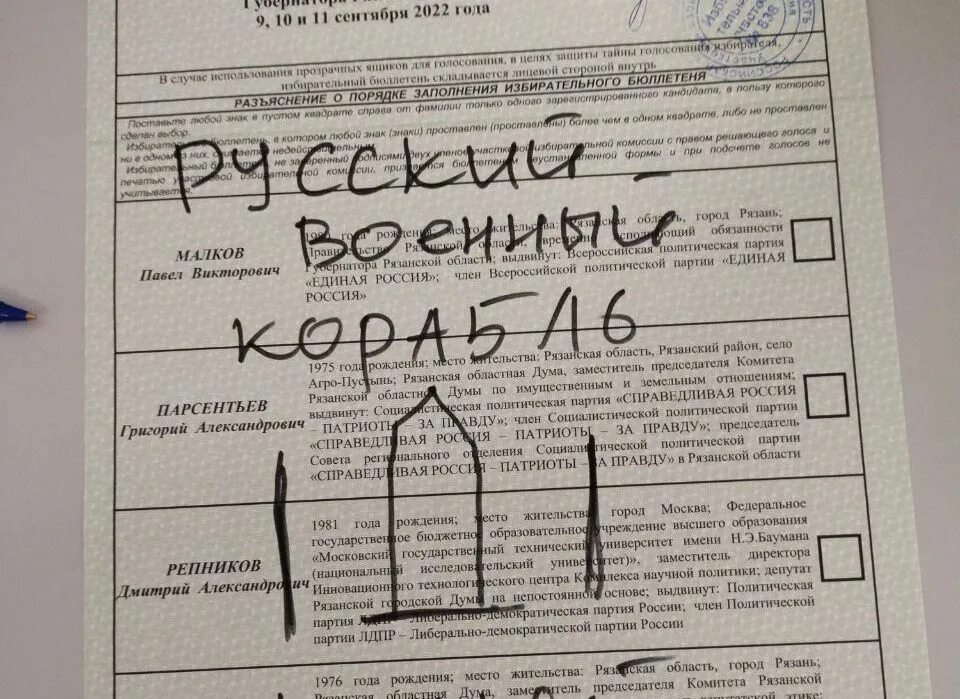 9, 10 и 11 сентября 2022 года
В случае использования прозрачных ящиков для голосования, в целях защиты тайны голосования избирателя,
избирательный бюллетень складывается лицевой стороной внутрь
РАЗЪЯСНЕНИЕ О ПОРЯДКЕ ЗАПОЛНЕНИЯ ИЗБИРАТЕЛЬНОГО БЮЛЛЕТЕНЯ
Поставьте любой знак в пустом квадрате справа от фамилии только одного зарегистрированного кандидата, в пользу которого
сделан выбор.
в котором любой знак (знаки) проставлен (проставлены) более чем в одном квадрате, либо не проставлен
ни в одном из них, считается недействительным.
Избирательный бюллетень, не заверенный подписями двух членов участковой избирательной комиссии с правом решающего голоса и
печатью участковой избирательной комиссии, признается бюллетенем неустановленной формы и при подсчете голосов не
учитывается.
РУССКИЙ
ВОЕННЫЙ
КОРАБЛЬ
МАЛКОВ
Павел Викторович
года рождения; место жительства: Рязанская область, город Рязань;
Правительство Рязанской области, временно исполняющий обязанности
Губернатора Рязанской области; выдвинут: Всероссийская политическая партия
«ЕДИНАЯ РОССИЯ»; член Всероссийской политической партии «ЕДИНАЯ
РОССИЯ»
ПАРСЕНТЬЕВ
Григорий Александрович
1975 года рождения; место жительства: Рязанская область, Рязанский район, село
Агро-Пустынь; Рязанская областная Дума, заместитель председателя Комитета
Рязанской областной Думы по имущественным и земельным отношениям;
выдвинут: Социалистическая политическая партия «СПРАВЕДЛИВАЯ РОССИЯ
– ПАТРИОТЫ – ЗА ПРАВДУ»; член Социалистической политической партии
«СПРАВЕДЛИВАЯ РОССИЯ – ПАТРИОТЫ – ЗА ПРАВДУ»; председатель
Совета регионального отделения Социалистической политической партии
«СПРАВЕДЛИВАЯ РОССИЯ – ПАТРИОТЫ – ЗА ПРАВДУ» в Рязанской области
РЕПНИКОВ
Дмитрий Александрович
1981 года рождения; место жительства: город Москва; Федеральное
государственное бюджетное образовательное учреждение высшего образования
«Московский государственный технический университет имени Н.Э.Баумана
(национальный исследовательский университет)», заместитель директора
Инновационного технологического центра Комплекса научной политики; депутат
Рязанской городской Думы на непостоянной основе; выдвинут: Политическая
партия ЛДПР – Либерально-демократическая партия России; член Политической
партии ЛДПР – Либерально-демократической партии России
1976 года рождения; место жительства: Рязанская область, город Рязань;
Рязанская областная Дума, заместитель председателя Комитета Рязанской